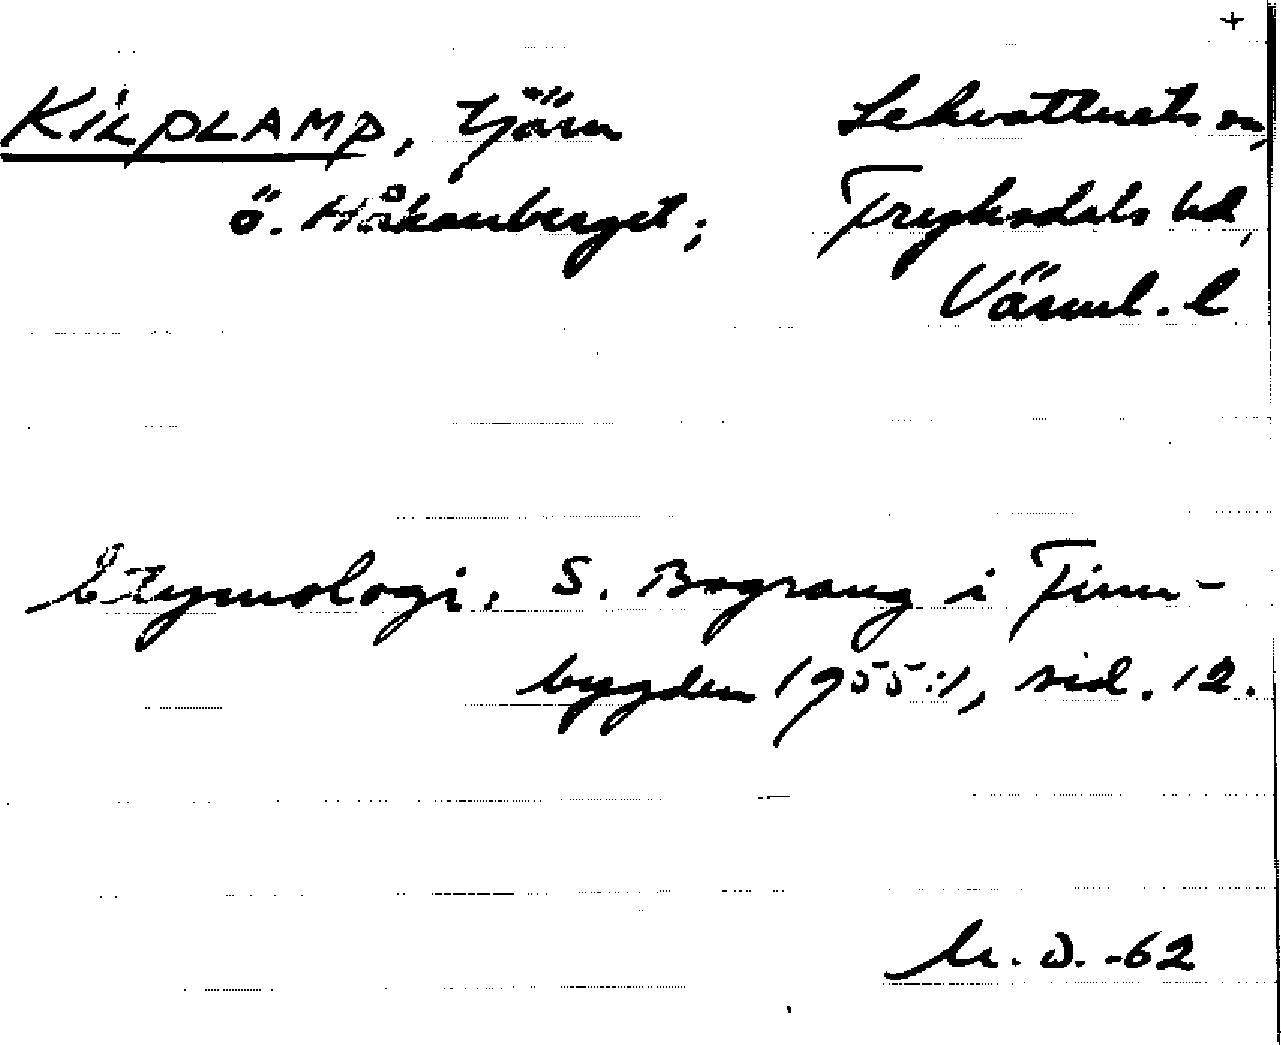 +
KILPLAMP, tjärn Lekvattnets sn,
ö. Håkanberget; Fryksdals hd,
Värml. l
Etymologi: S. Bograng i Finn-
bygden 1955:1, sid. 12.
M. O. -62